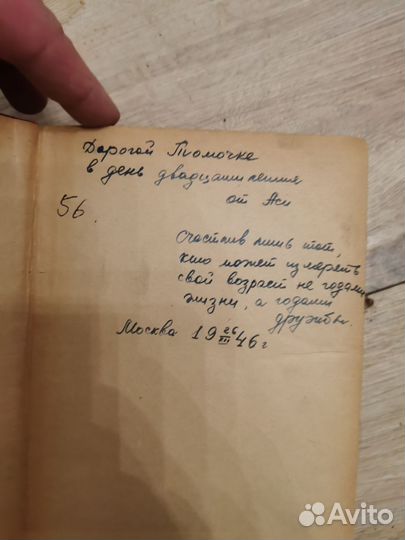 Дорогой Томочке
в день двадцатилетия
от Аси
56.
Счастлив лишь тот,
кто может измерять
свой возраст не годами
жизни, а годами
дружбы.
Москва 19 26/III 46 г
Avito